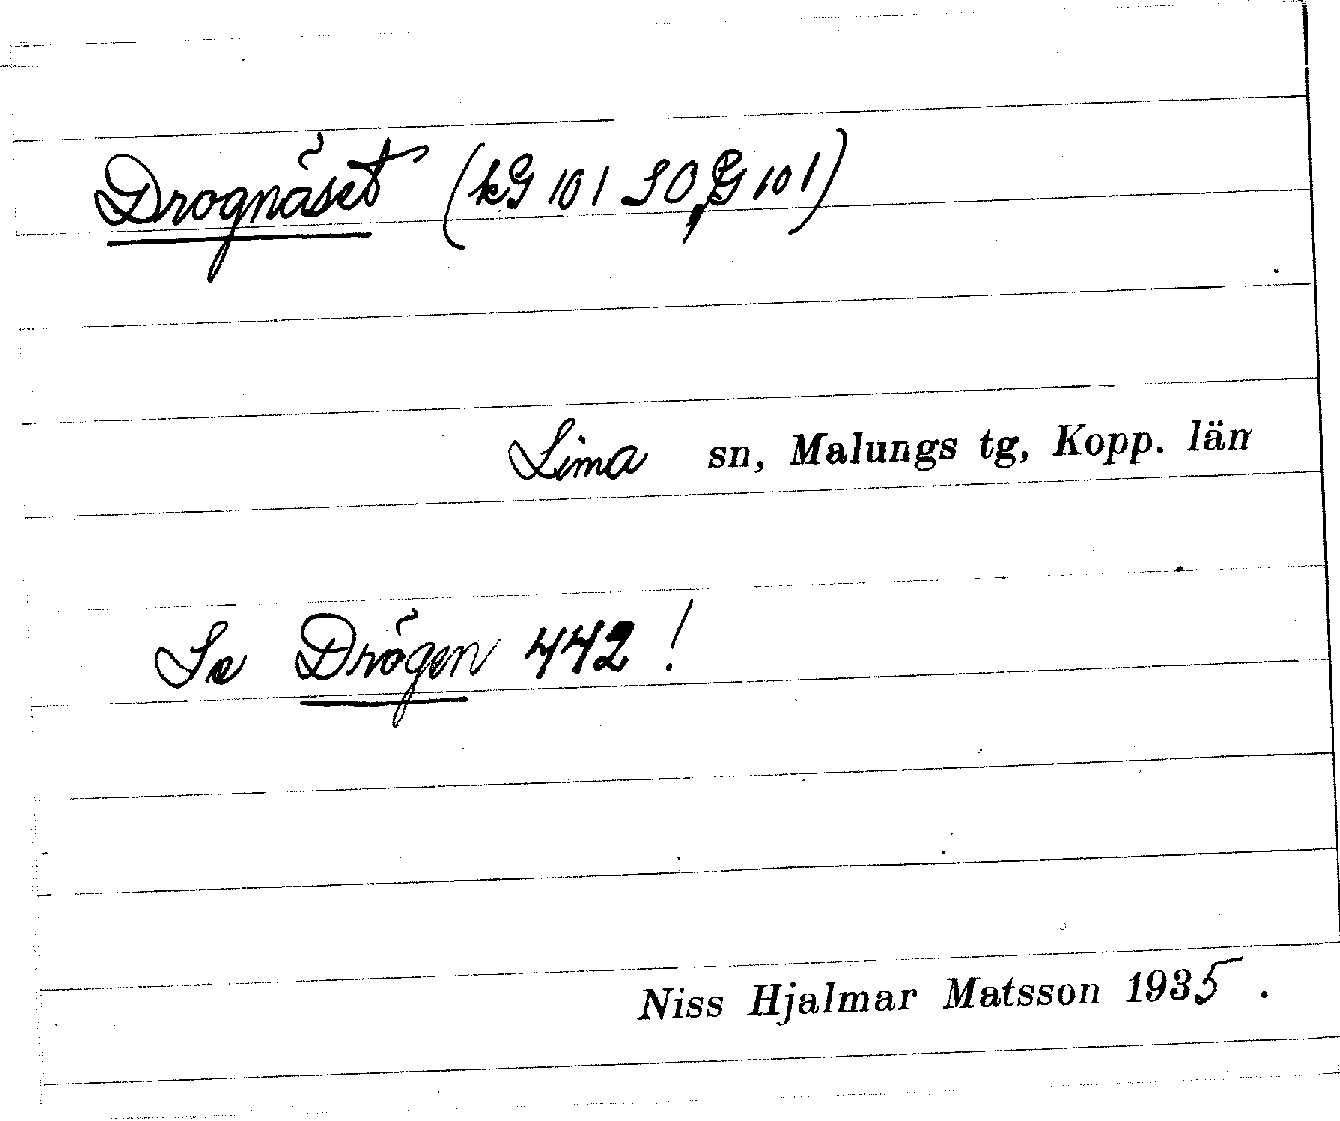 Drognäset (kG 101 SO, G 101)
Lima sn, Malungs tg, Kopp. län
Se Drögen 442!
Niss Hjalmar Matsson 1935.